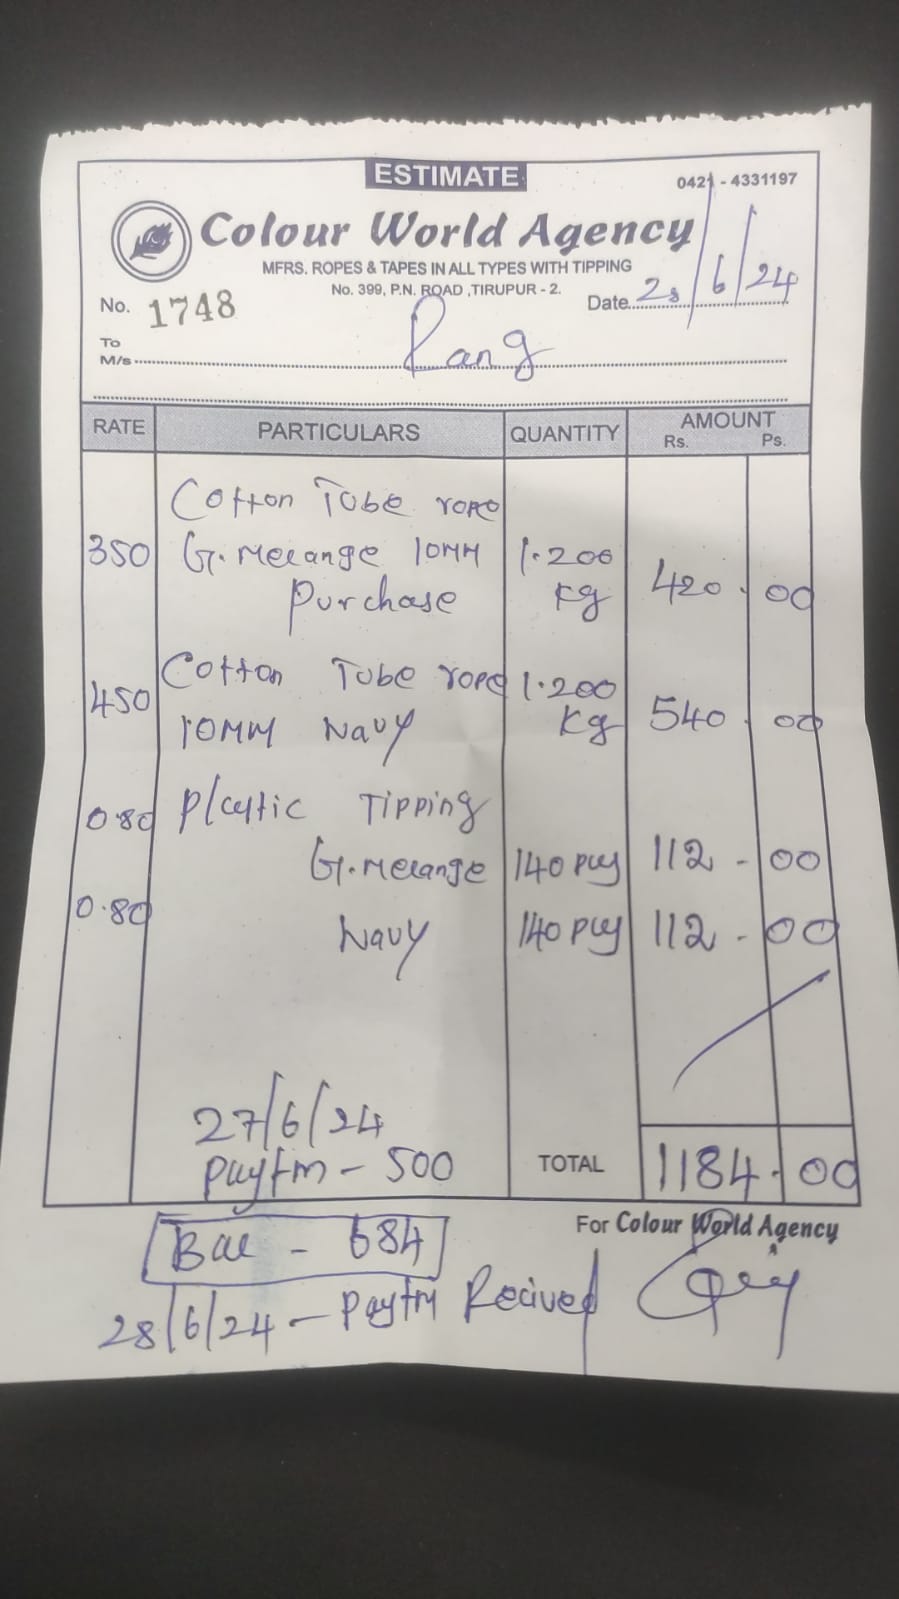 ESTIMATE
0421 - 4331197
Colour World Agency
MFRS. ROPES & TAPES IN ALL TYPES WITH TIPPING
No. 399, P.N. ROAD ,TIRUPUR - 2.
No. 1748
Date 28/6/24
To
M/s Rang
RATE PARTICULARS QUANTITY AMOUNT
Rs. Ps.
Cotton Tube rope
350 G.Melange 10MM 1.200
Purchase Kg 420.00
Cotton Tube rope 1.200
450 10MM Navy Kg 540.00
0.80 Plastic Tipping
G.melange 140 pcs 112-00
0.80
Navy 140 pcs 112-00
27/6/24
paytm - 500 TOTAL 1184.00
For Colour World Agency
Bal - 684
28/6/24 - Paytm Recived